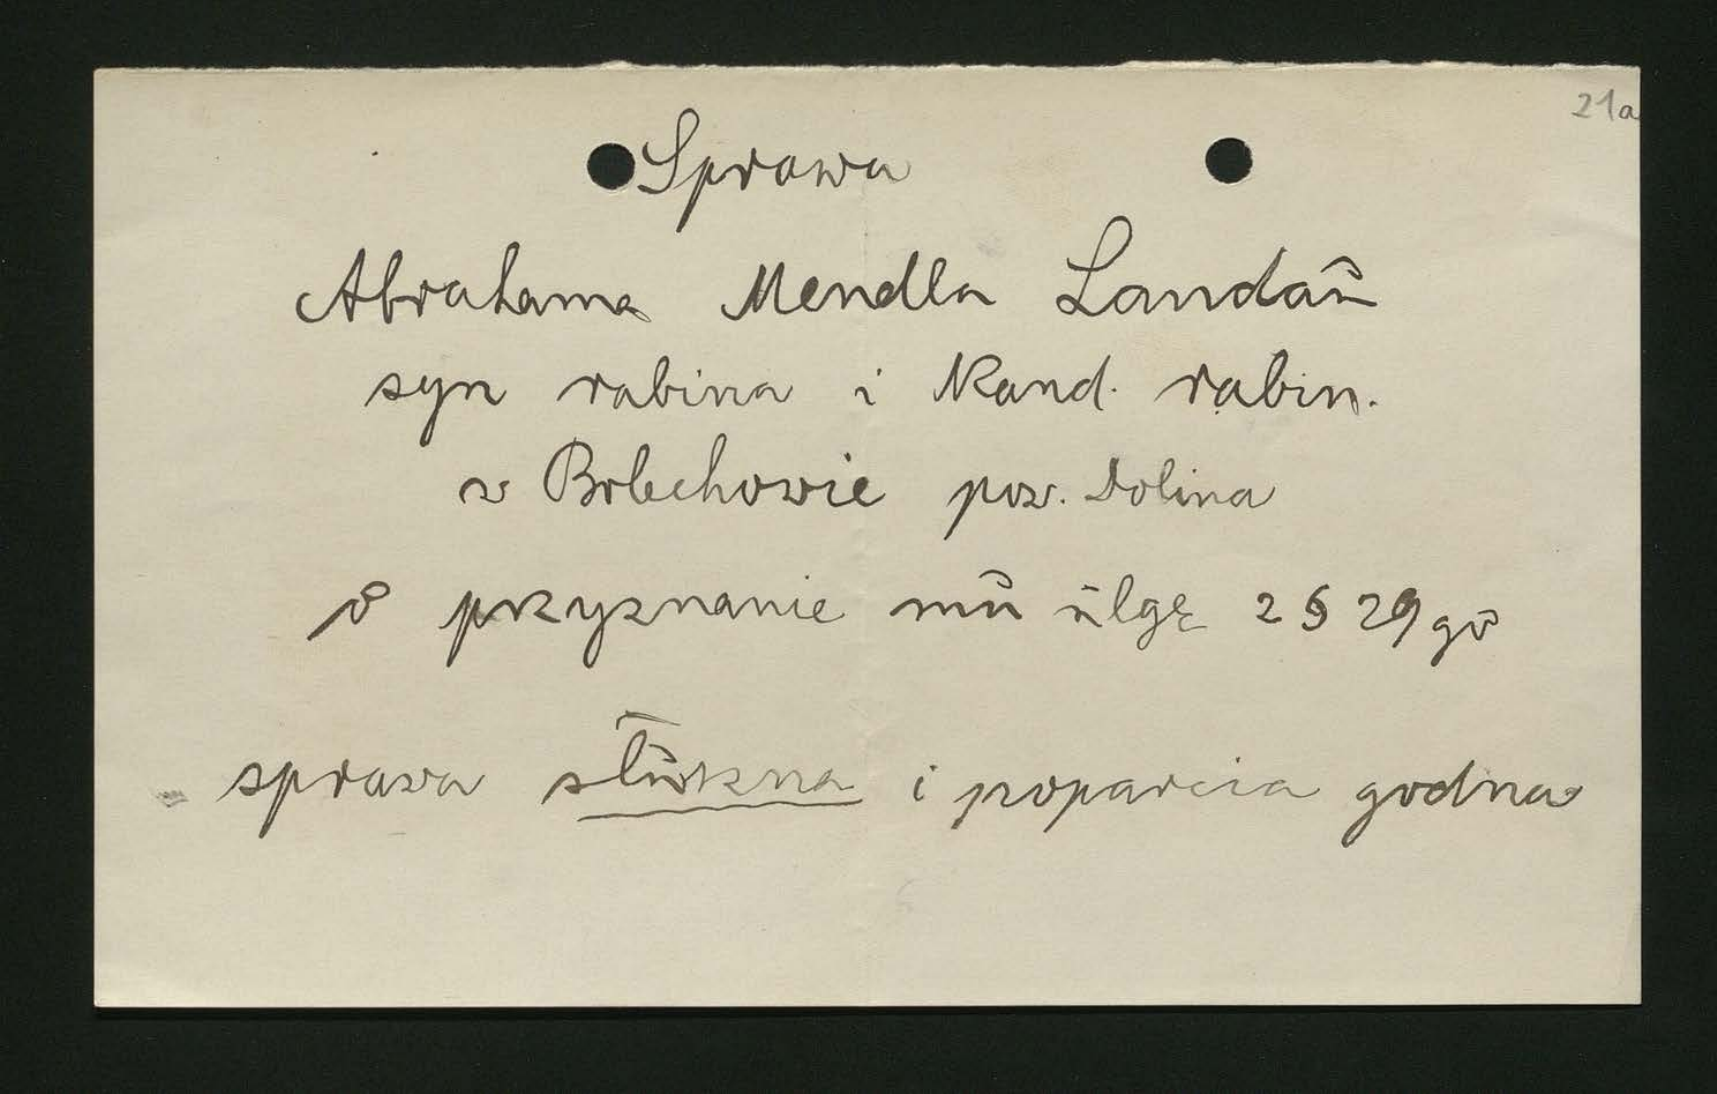 21a
Sprawa
Abrahama Mendla Landau
syn rabina i Kand. rabin.
w Bolechowie pow. Dolina
o przyznanie mu ulgę z § 29 go
sprawa słuszna i poparcia godna